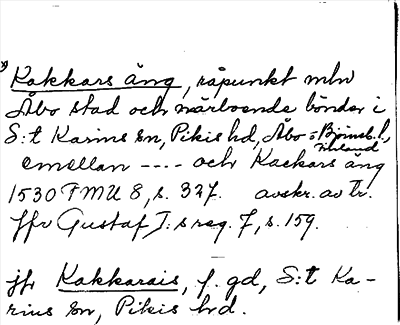 Kakkars äng, råpunkt mln
Åbo stad och närboende bönder i
S:t Karins sn, Pikis hd, Åbo o Björneb. l,
Finland
emellan ---- och Kackars äng
1530 FMU 8, s. 327. avskr. av tr.
Jfr Gustaf I:s reg. 7, s. 159.
jfr Kakkarais, f. gd, S:t Ka-
rins sn, Pikis hd.